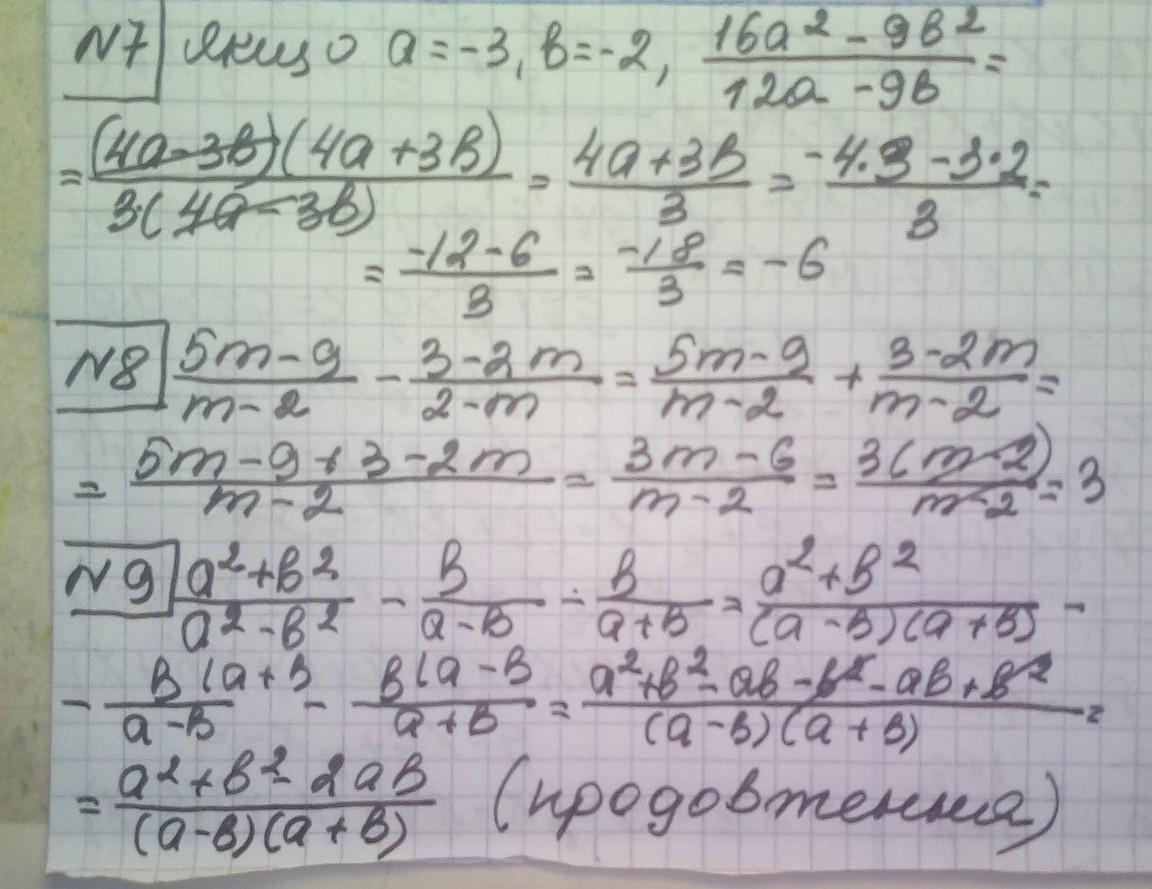 N7 Якщо a=-3, в=-2, (16a² - 9в²)/(12a - 9в) =
= ((4a-3в)(4a+3в))/(3·(4a-3в)) = (4a+3в)/3 = (-4·3-3·2)/3 =
= (-12-6)/3 = (-18)/3 = -6
N8 (5m-9)/(m-2) - (3-2m)/(2-m) = (5m-9)/(m-2) + (3-2m)/(m-2) =
= (5m-9+3-2m)/(m-2) = (3m-6)/(m-2) = (3(m-2))/(m-2) = 3
N9 (a²+в²)/(a²-в²) - в/(a-в) - в/(a+в) = (a²+в²)/((a-в)(a+в)) -
- (в(a+в)/(a-в) - (в(a-в)/(a+в) = (a²+в²-aв-в²-aв+в²)/((a-в)(a+в)) =
= (a²+в²-2aв)/((a-в)(a+в)) (продовження)